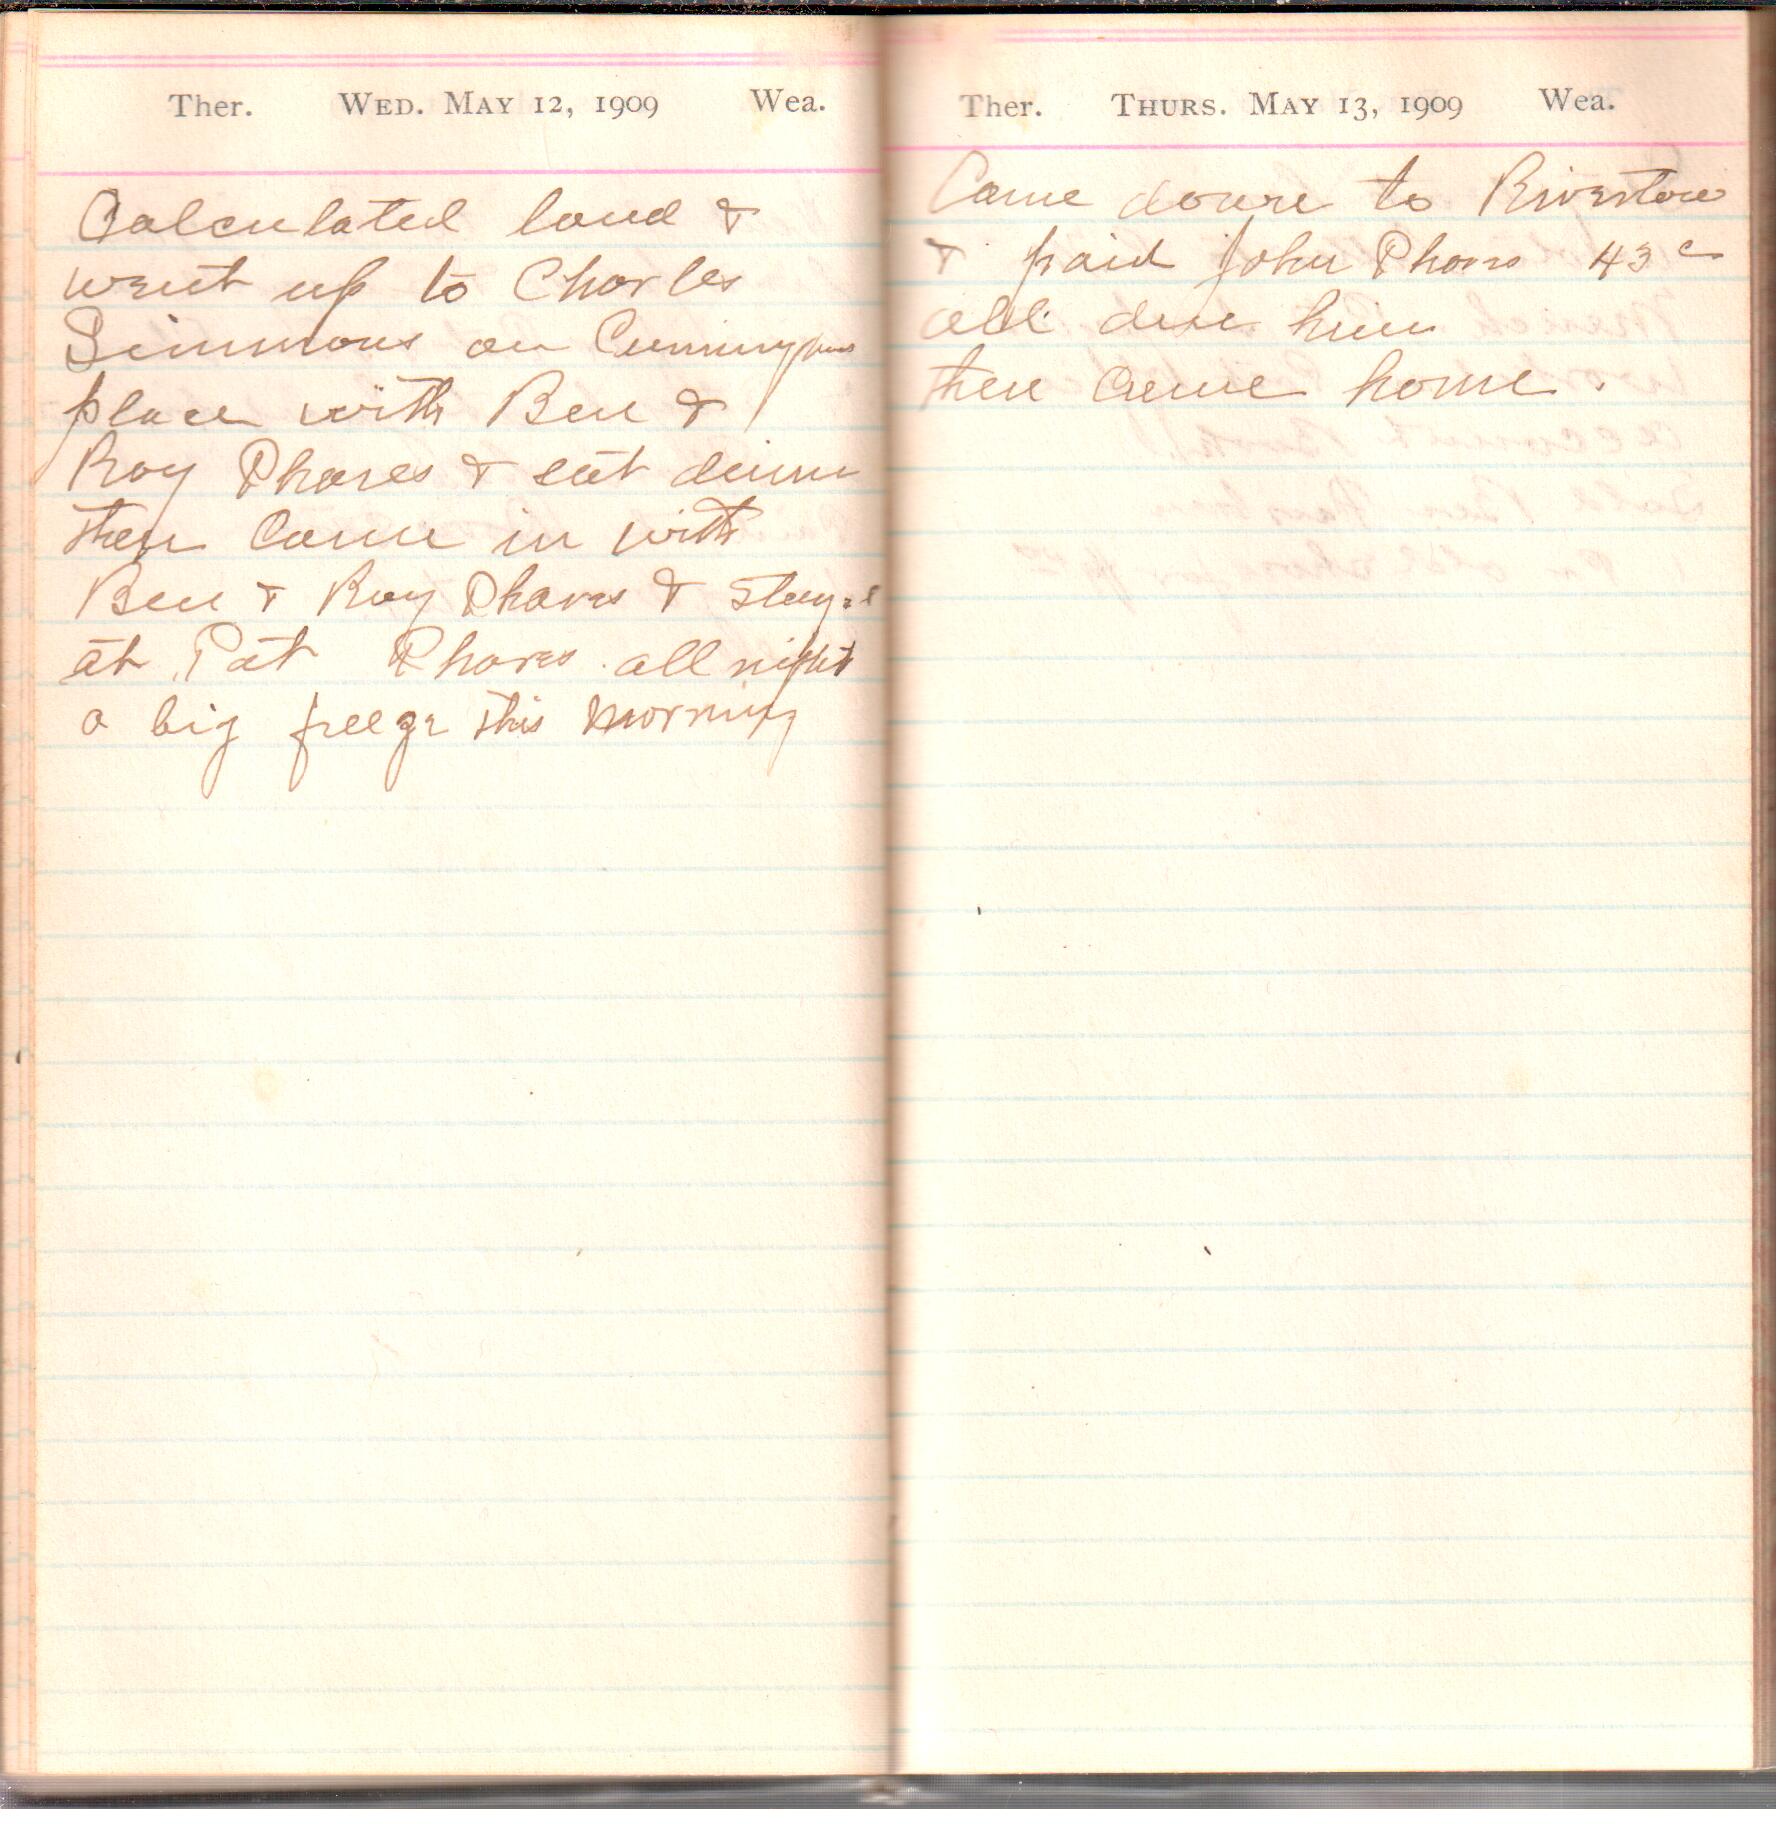 Ther. WED. MAY 12, 1909 Wea.
Calculated land &
went up to Charles
Simmons on
place with Ben &
Roy Phares & eat dinner
then came in with
Ben & Roy Phares & stayed
at Pat Phares all night
a big freeze this morning
Ther. THURS. MAY 13, 1909 Wea.
Came down to Riverton
& paid John Phares 43 c
all due him
then came home.